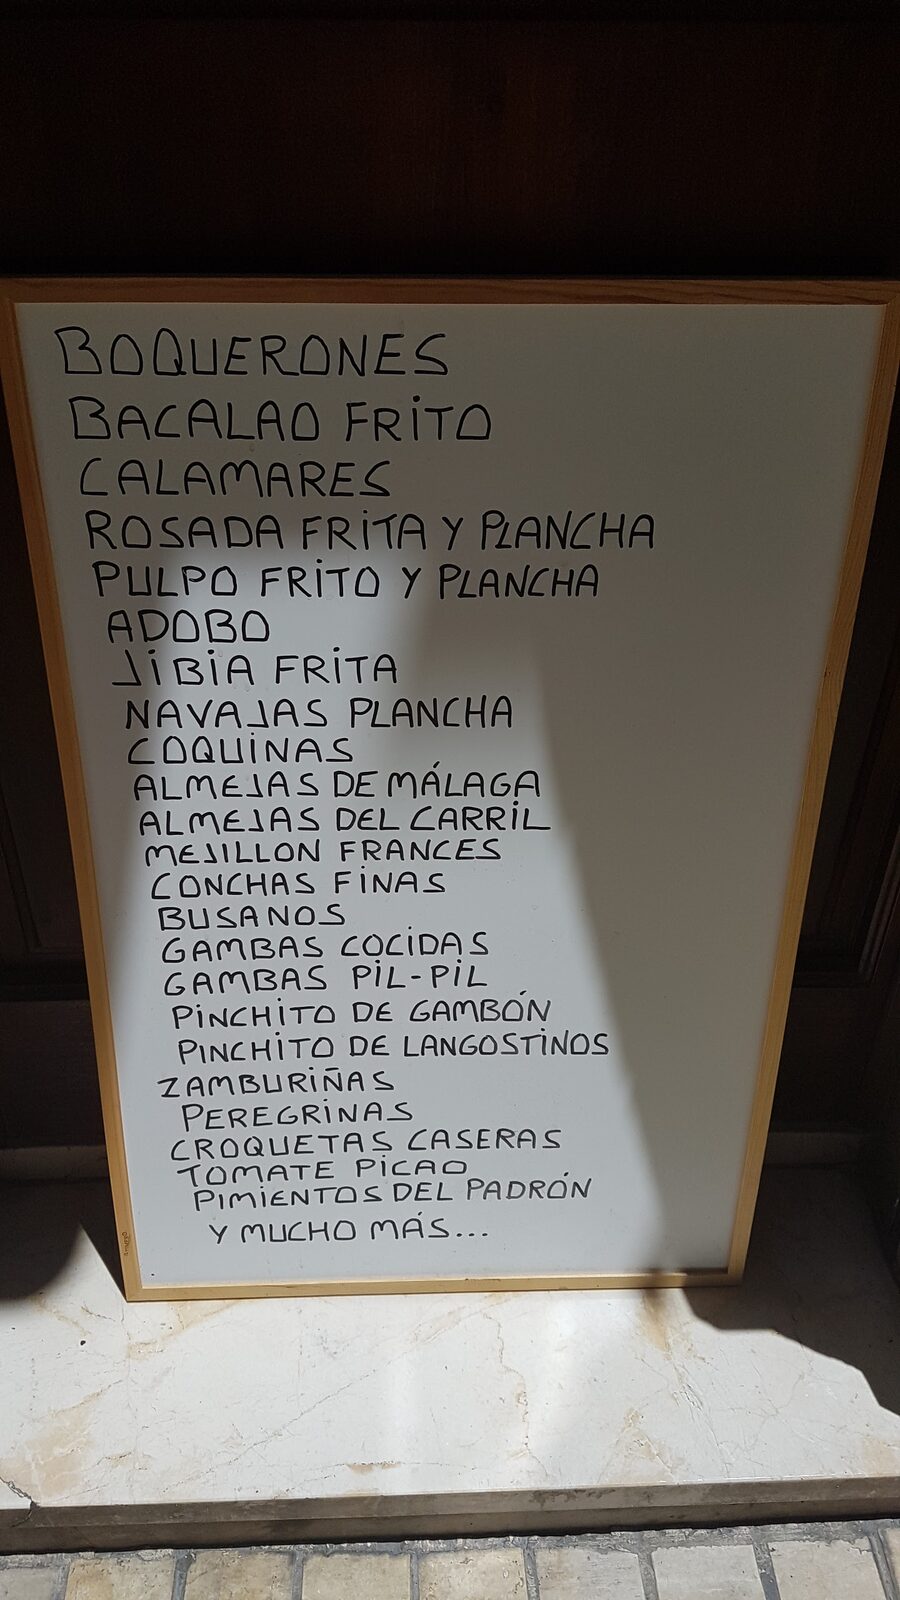 BOQUERONES
BACALAO FRITO
CALAMARES
ROSADA FRITA Y PLANCHA
PULPO FRITO Y PLANCHA
ADOBO
JIBIA FRITA
NAVAJAS PLANCHA
COQUINAS
ALMEJAS DE MÁLAGA
ALMEJAS DEL CARRIL
MEJILLON FRANCES
CONCHAS FINAS
BUSANOS
GAMBAS COCIDAS
GAMBAS PIL-PIL
PINCHITO DE GAMBÓN
PINCHITO DE LANGOSTINOS
ZAMBURIÑAS
PEREGRINAS
CROQUETAS CASERAS
TOMATE PICAO
PIMIENTOS DEL PADRÓN
Y MUCHO MÁS...